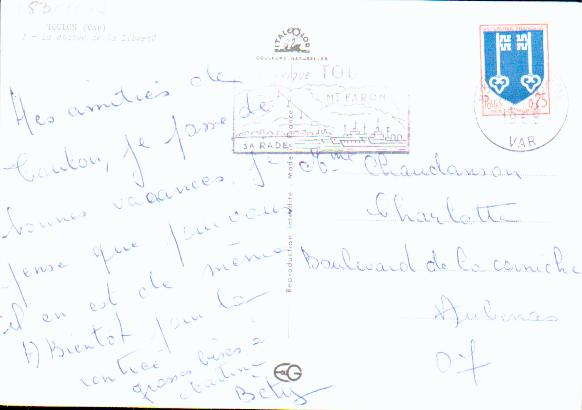 83
TOULON (Var)
2 - La statue de la Liberté
Mes amitiés de
Toulon, je passe de
bonnes vacances. Je
pense que pour vous
il en est de même
Bientôt pour la
rentrée
grosses bises à
Martine
Bety
ITALCOLOR
COULEURS NATURELLES
Reproduction interdite Made in France
TOU
Mt FARON
SA RADE
REPUBLIQUE FRANÇAISE
Postes 0,25
VAR
Mme Chaudanson
Charlotte
Boulevard de la corniche
Aubenas
07